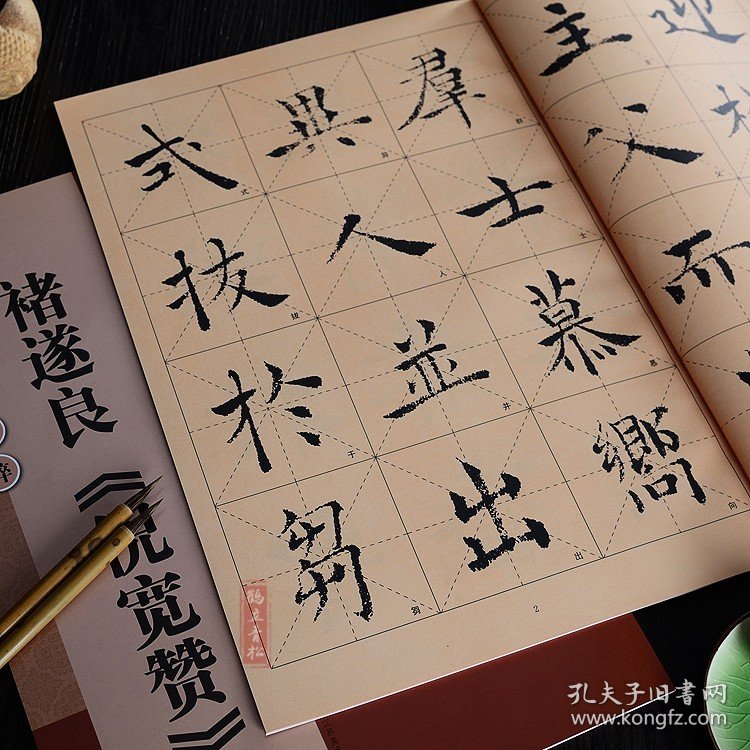 迎
主父而
羣士慕嚮
群士慕向
異人並出
异人并出
式拔於芻
式拔于芻
2
褚遂良
《倪宽赞》
粹
鹤立青松
孔夫子旧書网
www.kongfz.com